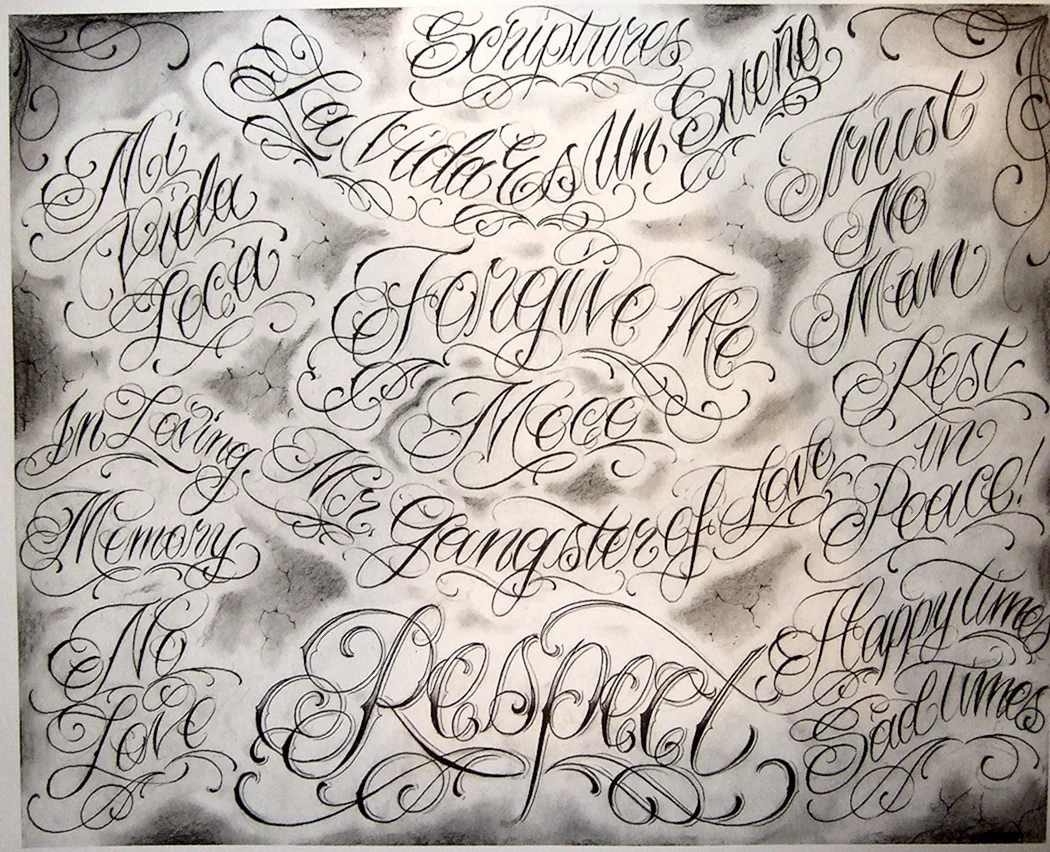 Scriptures
La Vida Es Un Sueño
Mi
Vida
Loca
Trust
No
Man
Forgive Me
Rest
in
Peace!
In Loving
Memory
Mr Gangster of Love
No
Love
Respect
Happy Times
Sad Times